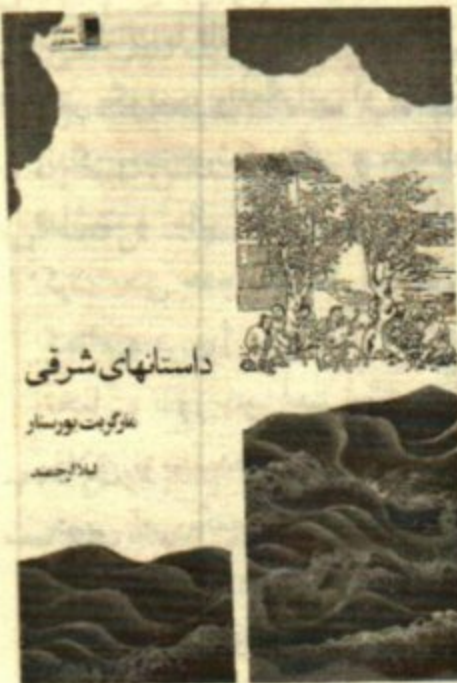 داستانهای شرقی
مارگریت یورسنار
لیلا ارجمند